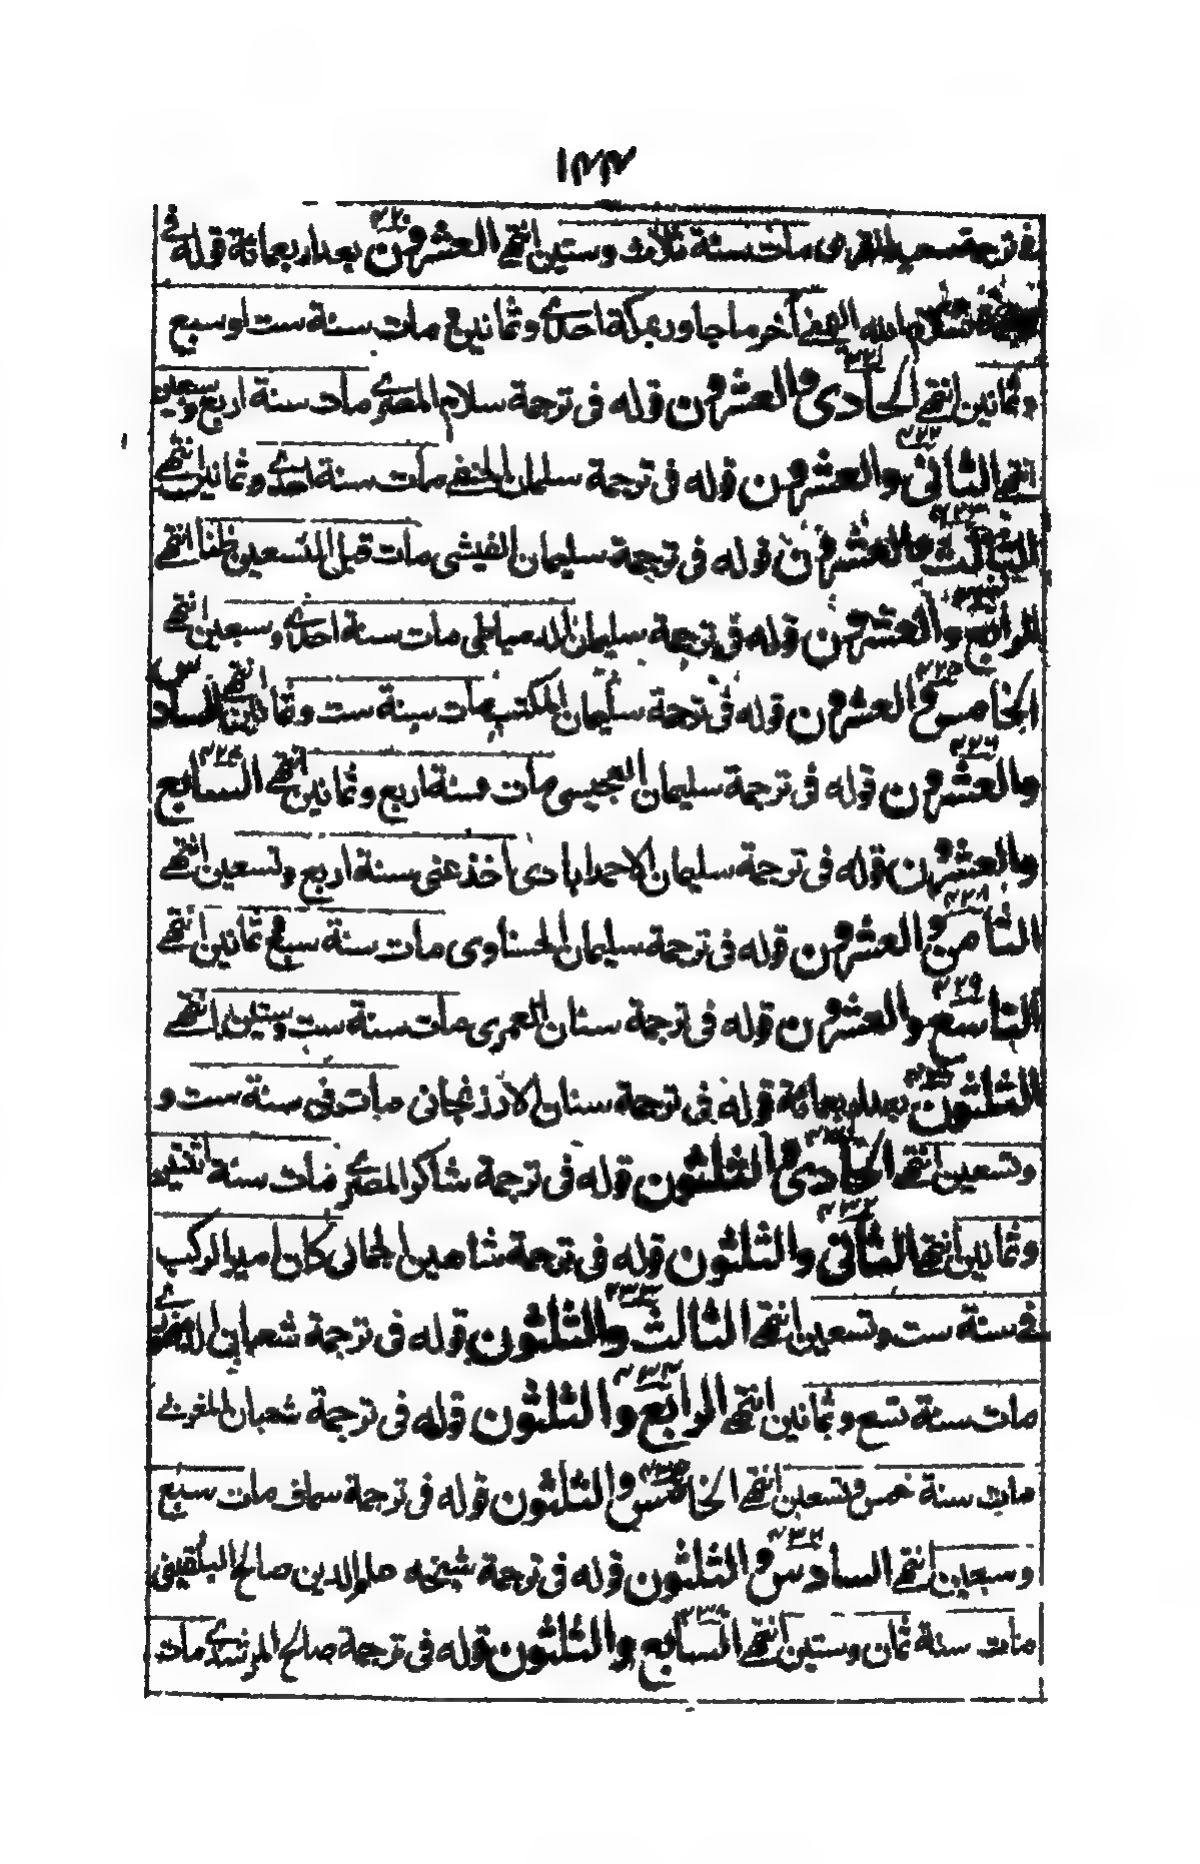 ١٢٣
فى ترجمة سعيد المقرى مات سنة ثلاث وستين انتهى العشرون ٢٢٠ بعد اربعمائة قوله فى
سلام الله الحنفى آخر ما جاور بمكة احدى وثمانين مات سنة ست او سبع
وثمانين انتهى الحادى والعشرون ٢٢١ قوله فى ترجمة سلام المصرى مات سنة اربع وتسعين
انتهى الثانى والعشرون ٢٢٢ قوله فى ترجمة سلمان الحنفى مات سنة احدى وثمانين انتهى
الثالث والعشرون ٢٢٣ قوله فى ترجمة سليمان الفيشى مات قبل التسعين ظنا انتهى
الرابع والعشرون قوله فى ترجمة سليمان الدمياطى مات سنة احدى وسبعين انتهى
الخامس والعشرون ٢٢٥ قوله فى ترجمة سليمان المكتب مات سنة ست وثمانين انتهى السادس
والعشرون ٢٢٦ قوله فى ترجمة سليمان مات سنة اربع وثمانين انتهى السابع
والعشرون قوله فى ترجمة سليمان الاحمدابادى اخذ عنى سنة اربع وتسعين انتهى
الثامن والعشرون ٢٢٨ قوله فى ترجمة سليمان الحسناوى مات سنة سبع ثمانين انتهى
التاسع والعشرون ٢٢٩ قوله فى ترجمة سنان العمرى مات سنة ست وستين انتهى
الثلثون بعد اربعمائة قوله فى ترجمة سنان الارزنجانى مات فى سنة ست و
وتسعين انتهى الحادى والثلثون قوله فى ترجمة شاكر المصرى مات سنة اثنتين
وثمانين انتهى الثانى والثلثون ٢٣٢ قوله فى ترجمة شاهين الجمالى كان امير الركب
فى سنة ست وتسعين انتهى الثالث والثلثون ٢٣٣ قوله فى ترجمة شعبان
مات سنة تسع وثمانين انتهى الرابع والثلثون ٢٣٤ قوله فى ترجمة شعبان المغربى
مات سنة خمس وتسعين انتهى الخامس والثلثون ٢٣٥ قوله فى ترجمة مات سبع
وسبعين انتهى السادس والثلثون ٢٣٦ قوله فى ترجمة شيخه علم الدين صالح البلقينى
مات سنة ثمان وستين انتهى السابع والثلثون قوله فى ترجمة صالح المرشدى مات